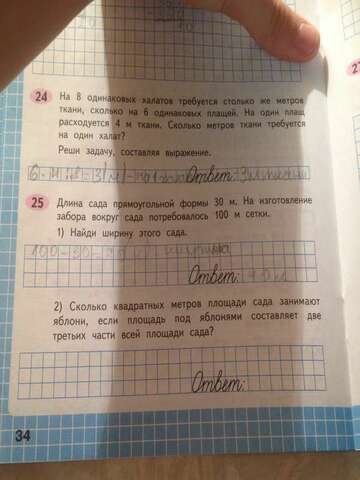 24 На 8 одинаковых халатов требуется столько же метров
ткани, сколько на 6 одинаковых плащей. На один плащ
расходуется 4 м ткани. Сколько метров ткани требуется
на один халат?
Реши задачу, составляя выражение.
Ответ:
25 Длина сада прямоугольной формы 30 м. На изготовление
забора вокруг сада потребовалось 100 м сетки.
1) Найди ширину этого сада.
100-30-
Ответ:
2) Сколько квадратных метров площади сада занимают
яблони, если площадь под яблонями составляет две
третьих части всей площади сада?
Ответ:
34